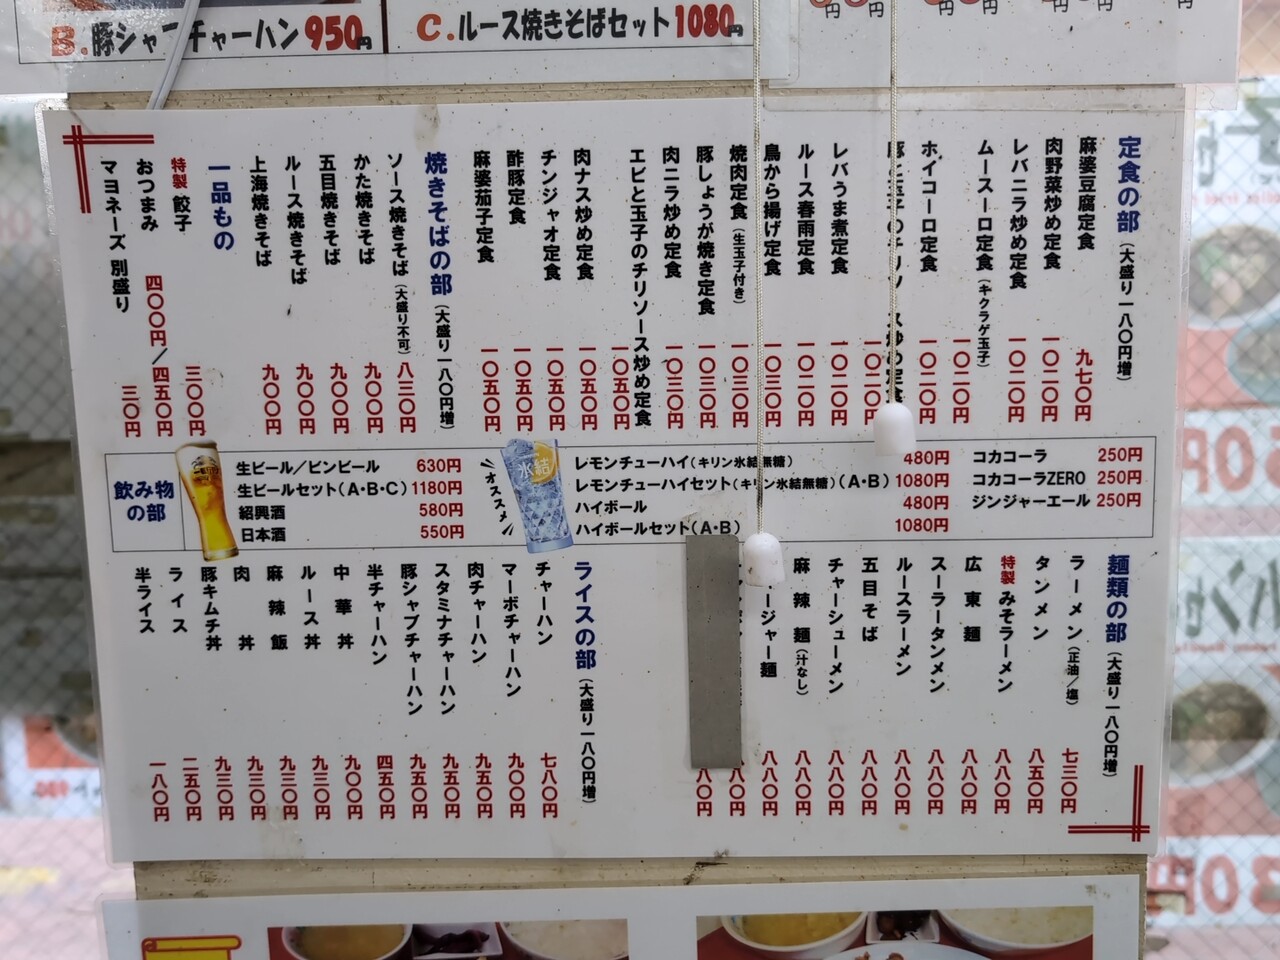 B.豚シャ チャーハン950円
C.ルース焼きそばセット1080円
定食の部(大盛り一八〇円増)
麻婆豆腐定食 九七〇円
肉野菜炒め定食 一〇二〇円
レバニラ炒め定食 一〇二〇円
ムースーロ定食(キクラゲ玉子) 一〇二〇円
ホイコーロ定食 一〇二〇円
豚と玉子のチリソース炒め定食
レバうま煮定食 一〇二〇円
ルース春雨定食 一〇二〇円
鳥から揚げ定食 一〇三〇円
焼肉定食(生玉子付き) 一〇三〇円
豚しょうが焼き定食 一〇三〇円
肉ニラ炒め定食 一〇三〇円
エビと玉子のチリソース炒め定食 一〇五〇円
肉ナス炒め定食 一〇五〇円
チンジャオ定食 一〇五〇円
酢豚定食 一〇五〇円
麻婆茄子定食 一〇五〇円
焼きそばの部(大盛り一八〇円増)
ソース焼きそば(大盛り不可) 八三〇円
かた焼きそば 九〇〇円
五目焼きそば 九〇〇円
ルース焼きそば 九〇〇円
上海焼きそば 九〇〇円
一品もの
特製 餃子 三〇〇円
おつまみ 四〇〇円/四五〇円
マヨネーズ 別盛り 三〇円
飲み物の部
生ビール/ビンビール 630円
生ビールセット(A・B・C) 1180円
紹興酒 580円
日本酒 550円
オススメ
氷結
レモンチューハイ(キリン氷結無糖) 480円
レモンチューハイセット(キリン氷結無糖)(A・B) 1080円
ハイボール 480円
ハイボールセット(A・B) 1080円
コカコーラ 250円
コカコーラZERO 250円
ジンジャーエール 250円
麺類の部(大盛り一八〇円増)
ラーメン(正油/塩) 七三〇円
タンメン 八五〇円
特製 みそラーメン 八八〇円
広東麺 八八〇円
スーラータンメン 八八〇円
ルースラーメン 八八〇円
五目そば 八八〇円
チャーシューメン 八八〇円
麻辣麺(汁なし) 八八〇円
ージャー麺 八八〇円
ライスの部(大盛り一八〇円増)
チャーハン 七八〇円
マーボチャーハン 九〇〇円
肉チャーハン 九五〇円
スタミナチャーハン 九五〇円
豚シャブチャーハン 九五〇円
半チャーハン 四五〇円
中華丼 九〇〇円
ルース丼 九三〇円
麻辣飯 九三〇円
肉丼 九三〇円
豚キムチ丼 九三〇円
ライス 二五〇円
半ライス 一八〇円